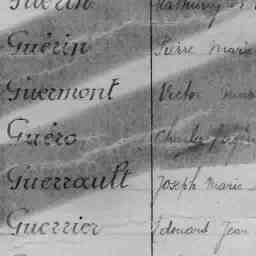 Guérin
Guérin Pierre Marie
Guermont Victor
Guéro Charles
Guerrault Joseph Marie
Guerrier Edouard Jean